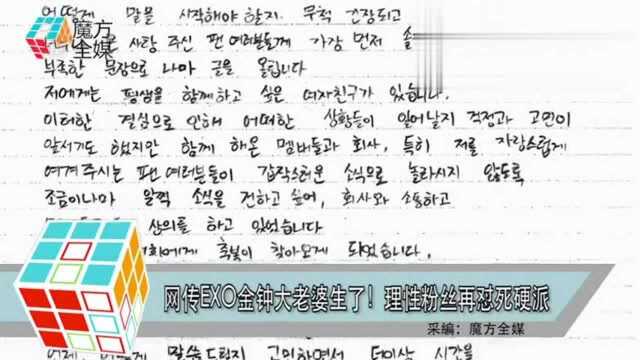 어떻게 말을 시작해야 할지 무척 긴장되고
사랑 주신 팬 여러분들께 가장 먼저 솔
부족한 문장으로 나마 글을 올립니다
저에게는 평생을 함께하고 싶은 여자친구가 있습니다.
이러한 결심으로 인해 어떠한 상황들이 일어날지 걱정과 고민이
앞서기도 했지만 함께 해온 멤버들과 회사, 특히 저를 자랑스럽게
여겨주시는 팬 여러분들이 갑작스러운 소식으로 놀라시지 않도록
조금이나마 일찍 소식을 전하고 싶어, 회사와 소통하고
상의를 하고 있었습니다
에게 축복이 찾아오게 되었습니다.
魔方
全媒
网传EXO金钟大老婆生了!理性粉丝再怼死硬派
采编:魔方全媒
말씀드릴지 고민하면서 더이상 시간을